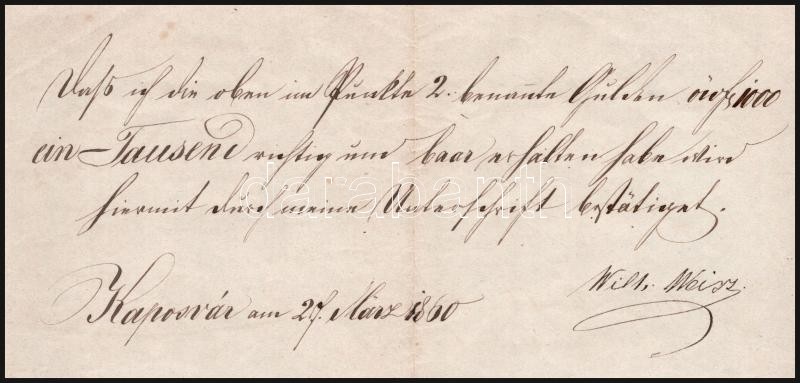 Daß ich die oben im Punkte 2. benannte Gulden öw f 1000
ein-Tausend richtig und baar erhalten habe wird
hiermit durch meine Unterschrift bestätiget.
Kaposvár am 27. März 1860
Wilh. Weisz.
darabanth